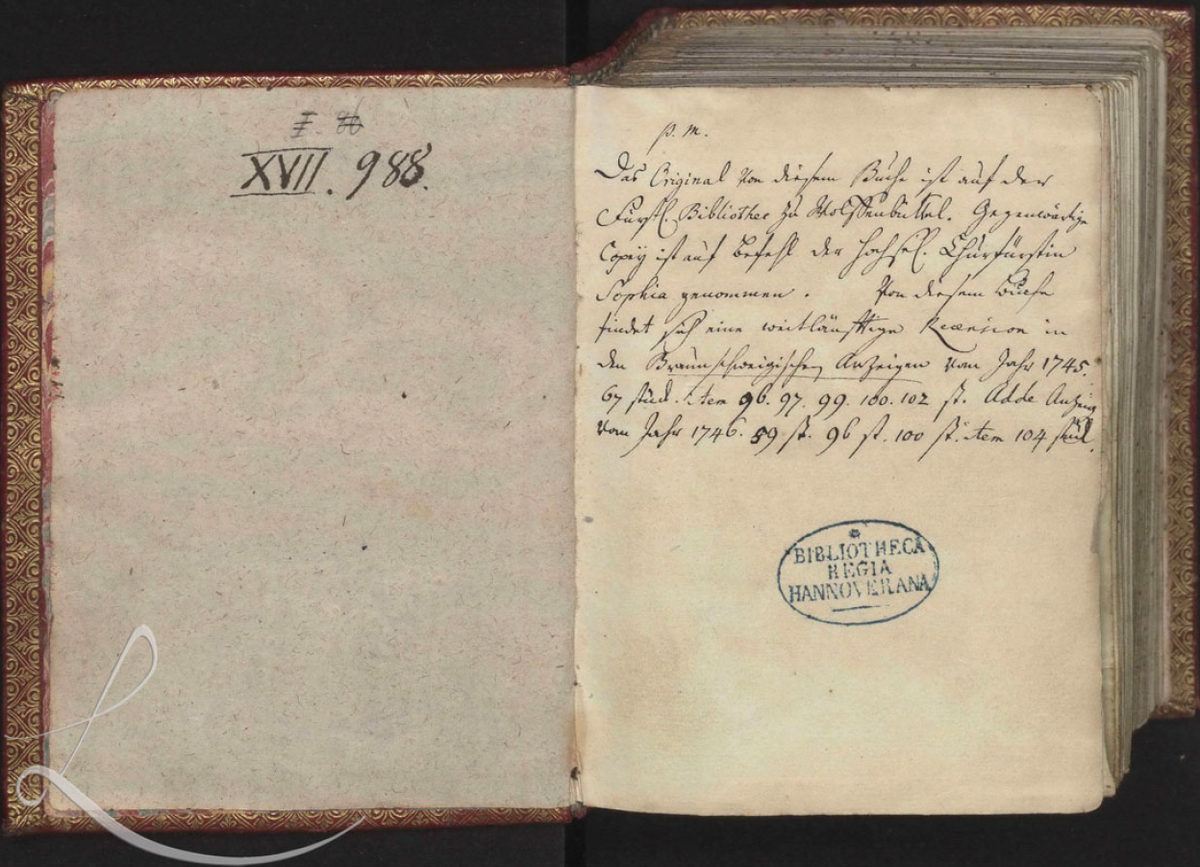 XVII. 988.
p. m.
Das Original von diesem Buche ist auf der
Fürstl. Bibliothec zu Wolffenbüttel. Gegenwärtige
Copey ist auf Befehl der Hochseel. Churfürstin
Sophia genommen. Von diesem Buche
findet sich eine weitläufftige Recension in
den Braunschweigischen Anzeigen vom Jahr 1745.
67 stück. item 96. 97. 99. 100. 102 st. Adde Anzeig
vom Jahr 1746. 59 st. 96 st. 100 st. item 104 stück.
BIBLIOTHECA
REGIA
HANNOVERANA